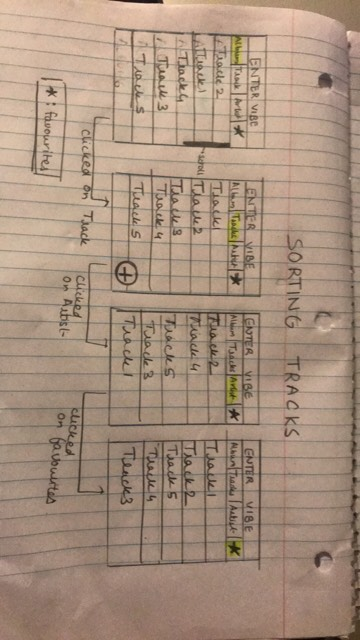 SORTING TRACKS
ENTER VIBE
Album Track Artist ★
Track 2
Track 1
Track 4
Track 3
Track 5
clicked on Track
ENTER VIBE
Album Tracks Artist ★
Track 1
Track 2
Track 3
Track 4
Track 5
+
clicked
on Artist
ENTER VIBE
Album Tracks Artist ★
Track 2
Track 4
Track 5
Track 3
Track 1
clicked
on favourites
ENTER VIBE
Album Tracks Artist ★
Track 1
Track 2
Track 5
Track 4
Track 3
★: favourites